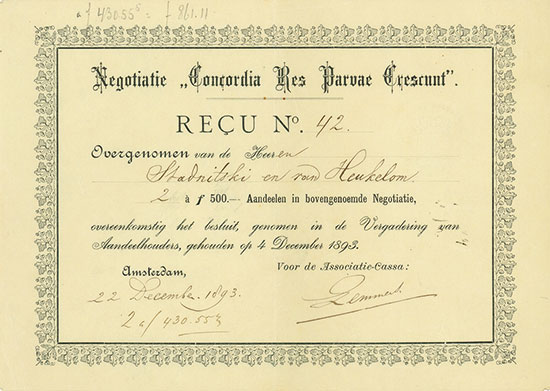 a f 430.55⁵ = f 861.11
Negotiatie „Concordia Res Parvae Crescunt".
REÇU No. 42.
Overgenomen van de Heeren
Stadnitski en van Heukelom
2 à f 500.— Aandeelen in bovengenoemde Negotiatie,
overeenkomstig het besluit, genomen in de Vergadering van
Aandeelhouders, gehouden op 4 December 1893.
Amsterdam,
Voor de Associatie-Cassa:
22 December 1893.
2 a f 430.55⁵